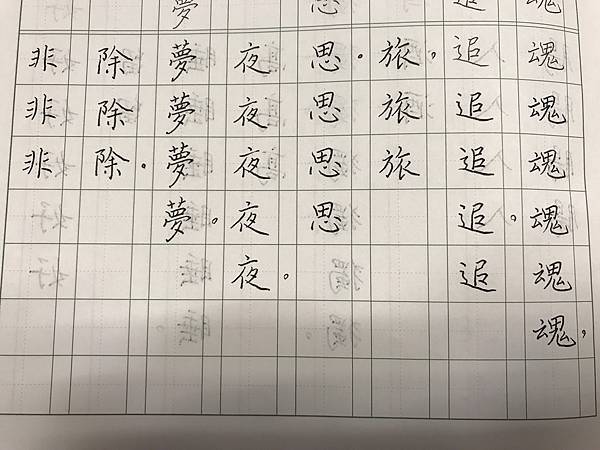 魂魂魂魂魂魂魂，
追追追追追。追
旅，旅旅
思思。思思思
夜夜夜夜夜。
夢夢夢夢夢。
除除除。
非非非